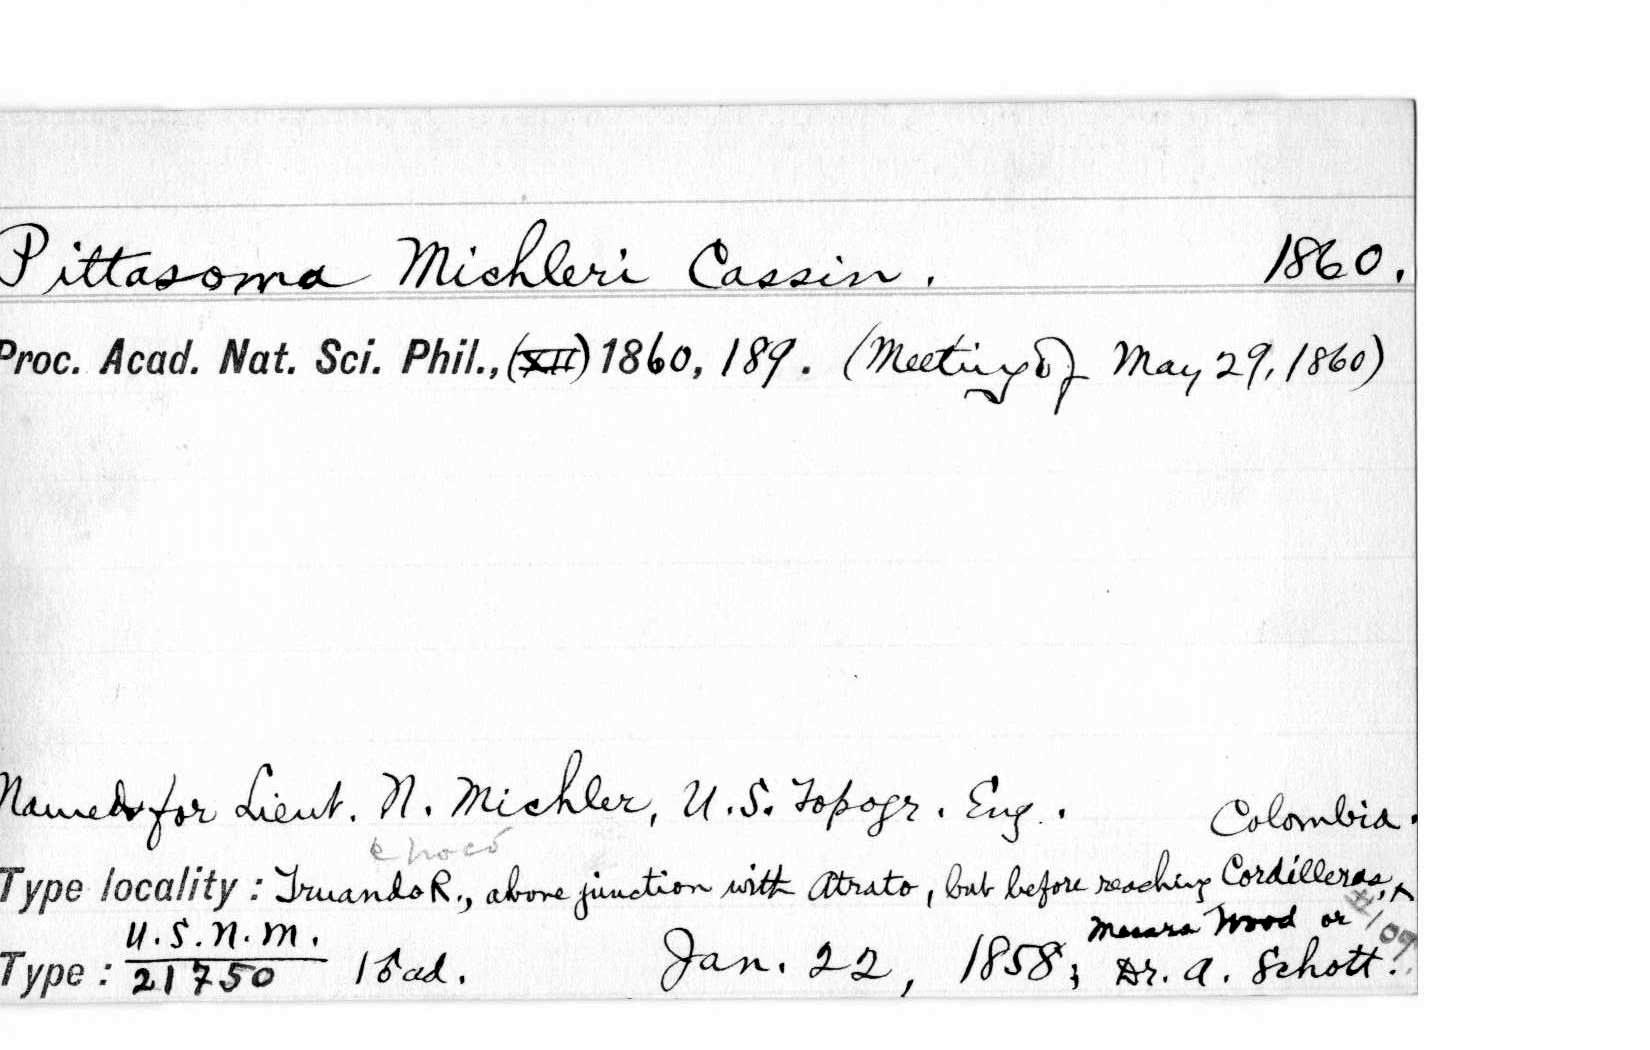 Pittasoma Michleri Cassin. 1860.
Proc. Acad. Nat. Sci. Phil., (XII) 1860, 189. (Meeting of May 29, 1860)
Named for Lieut. N. Michler, U.S. Topogr. Eng. Colombia.
Choco
Type locality: Truando R., above junction with Atrato, but before reaching Cordilleras,
U.S.N.M. Wood or #109
Type: 21750 ad. Jan. 22, 1858; Dr. A. Schott.